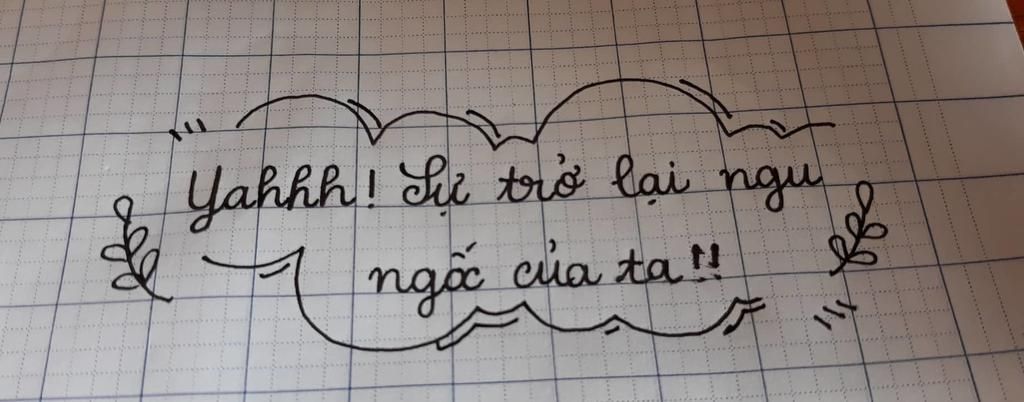 Yahhh! Sự trở lại ngu
ngốc của ta!!